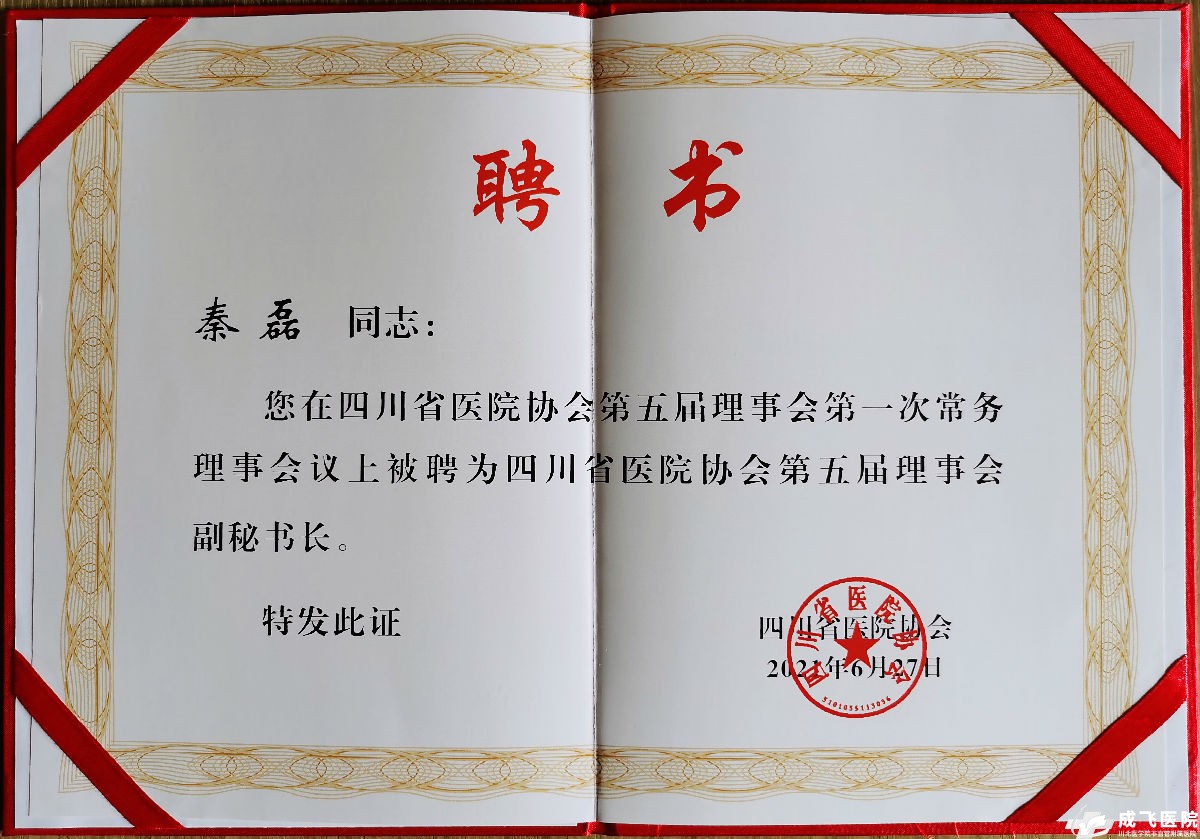 聘 书
秦磊 同志：
您在四川省医院协会第五届理事会第一次常务
理事会议上被聘为四川省医院协会第五届理事会
副秘书长。
特发此证
四川省医院协会
2021年6月27日
四川省医院协会
5101055113056
成飞医院